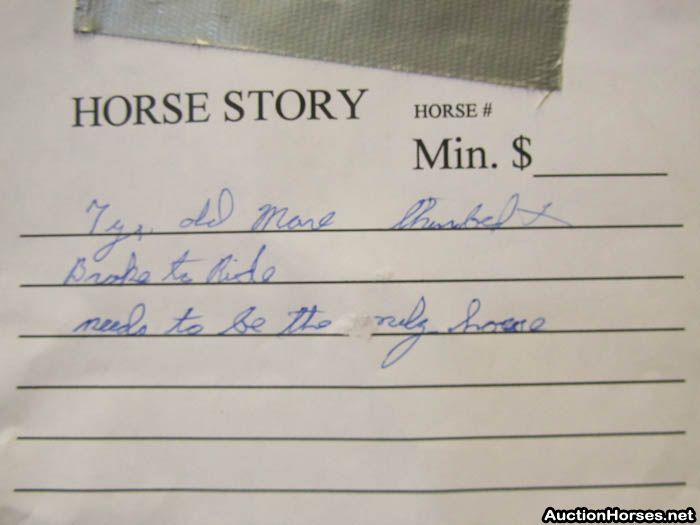 HORSE STORY
HORSE #
Min. $
7 yr. old Mare
Broke to Ride
needs to be the only horse
AuctionHorses.net